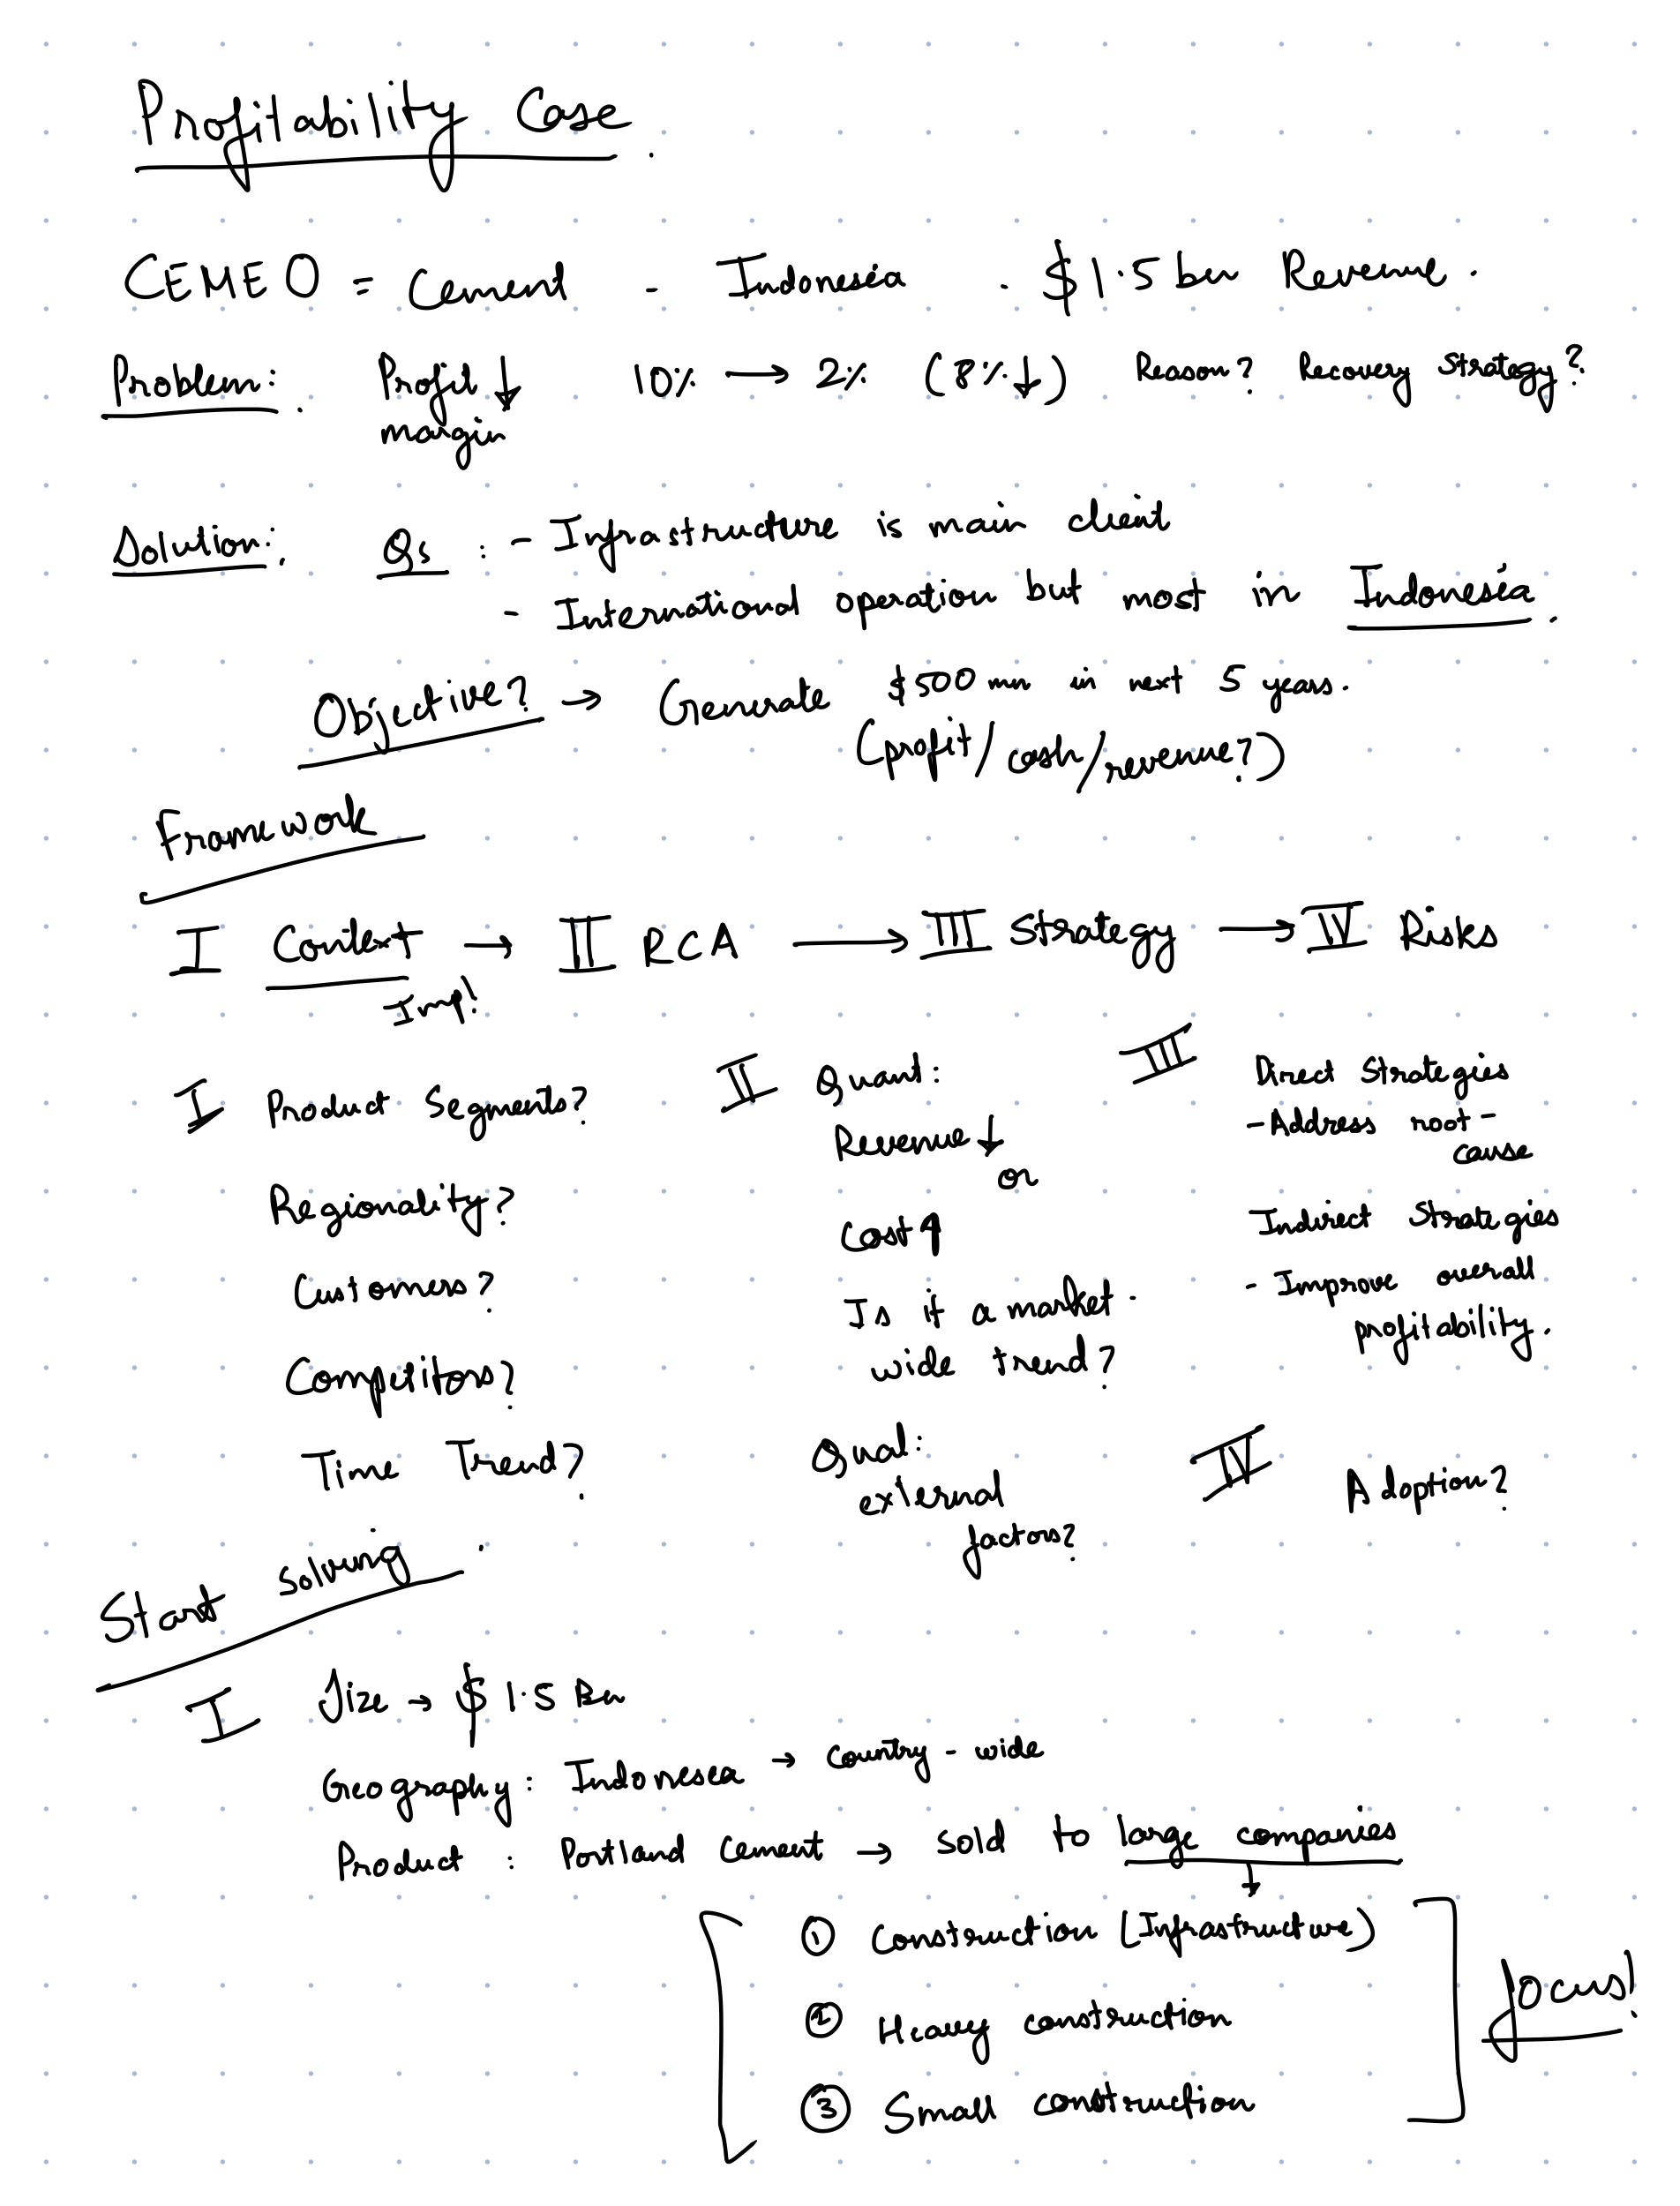 Profitability Case.
CEMEO = Cement - Indonesia - $1.5 bn Revenue.
Problem: Profit ↓ 10% → 2% (8%↓) Reason? Recovery Strategy?
margin
Solution: Qs : - Infrastructure is main client
- International operation but most in Indonesia.
Objective? → Generate $500 mn in next 5 years.
(profit/cash/revenue?)
Framework
I Context → II RCA → III Strategy → IV Risks
Imp!
I Product Segments?
Regionality?
Customers?
Competitors?
Time Trend?
II Quant:
Revenue ↓
or
Cost ↑
Is it a market-
wide trend?
Qual:
external
factors?
III Direct Strategies
- Address root-
cause
Indirect Strategies
- Improve overall
profitability.
IV Adoption?
Start solving
I Size → $1.5 Bn
Geography: Indonesia → Country-wide
Product : Portland Cement → sold to large companies
↓
① Construction (Infrastructure)
② Heavy construction
③ Small construction
focus!